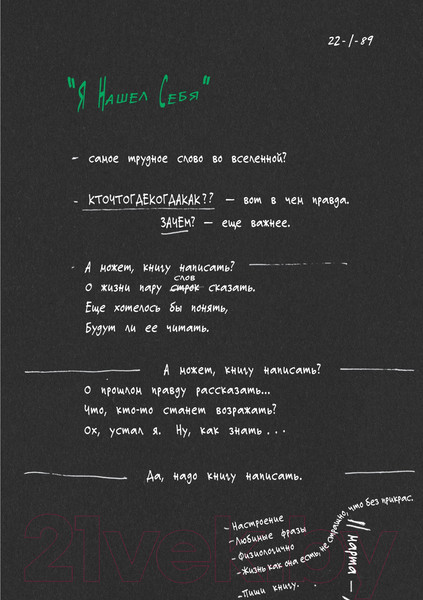 22-1-89
"Я Нашел Себя"
- самое трудное слово во вселенной?
- КТОЧТОГДЕКОГДАКАК?? - вот в чем правда.
ЗАЧЕМ? - еще важнее.
- А может, книгу написать?
слов
О жизни пару строк сказать.
Еще хотелось бы понять,
Будут ли ее читать.
А может, книгу написать?
О прошлом правду рассказать...
Что, кто-то станет возражать?
Ох, устал я. Ну, как знать...
Да, надо книгу написать.
- Настроение
- Любиные фразы
- Физиологично
- Жизнь как она есть, не страшно, что без прикрас.
- Пиши книгу.
11 марта -
21vek.by